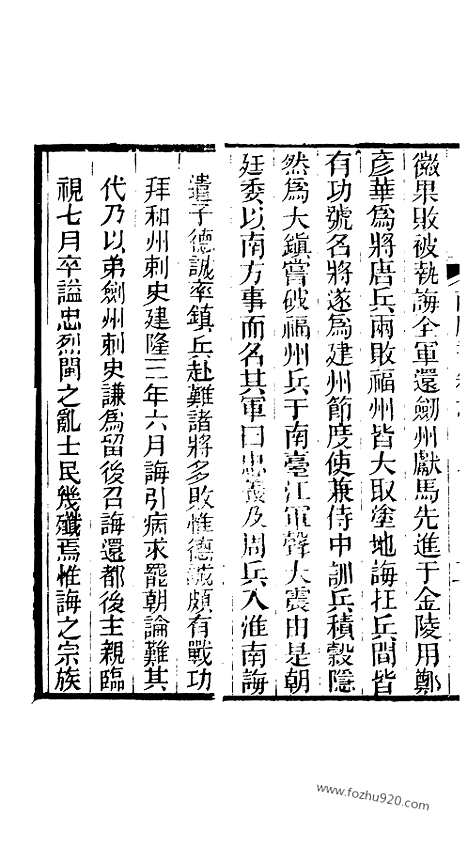 徽果敗被執誨全軍還劒州獻馬先進于金陵用鄭
彥華爲將唐兵兩敗福州皆大取塗地誨在兵間皆
有功號名將遂爲建州節度使兼侍中訓兵積穀隱
然爲大鎮嘗破福州兵于南臺江軍聲大震由是朝
廷委以南方事而名其軍曰忠義及周兵入淮南誨
遣子德誠率鎮兵赴難諸將多敗惟德誠頗有戰功
拜和州刺史建隆三年六月誨引病求罷朝論難其
代乃以弟劍州刺史謙爲留後召誨還都後主親臨
視七月卒謚忠烈閩之亂士民幾殲焉惟誨之宗族
www.fozhu920.com